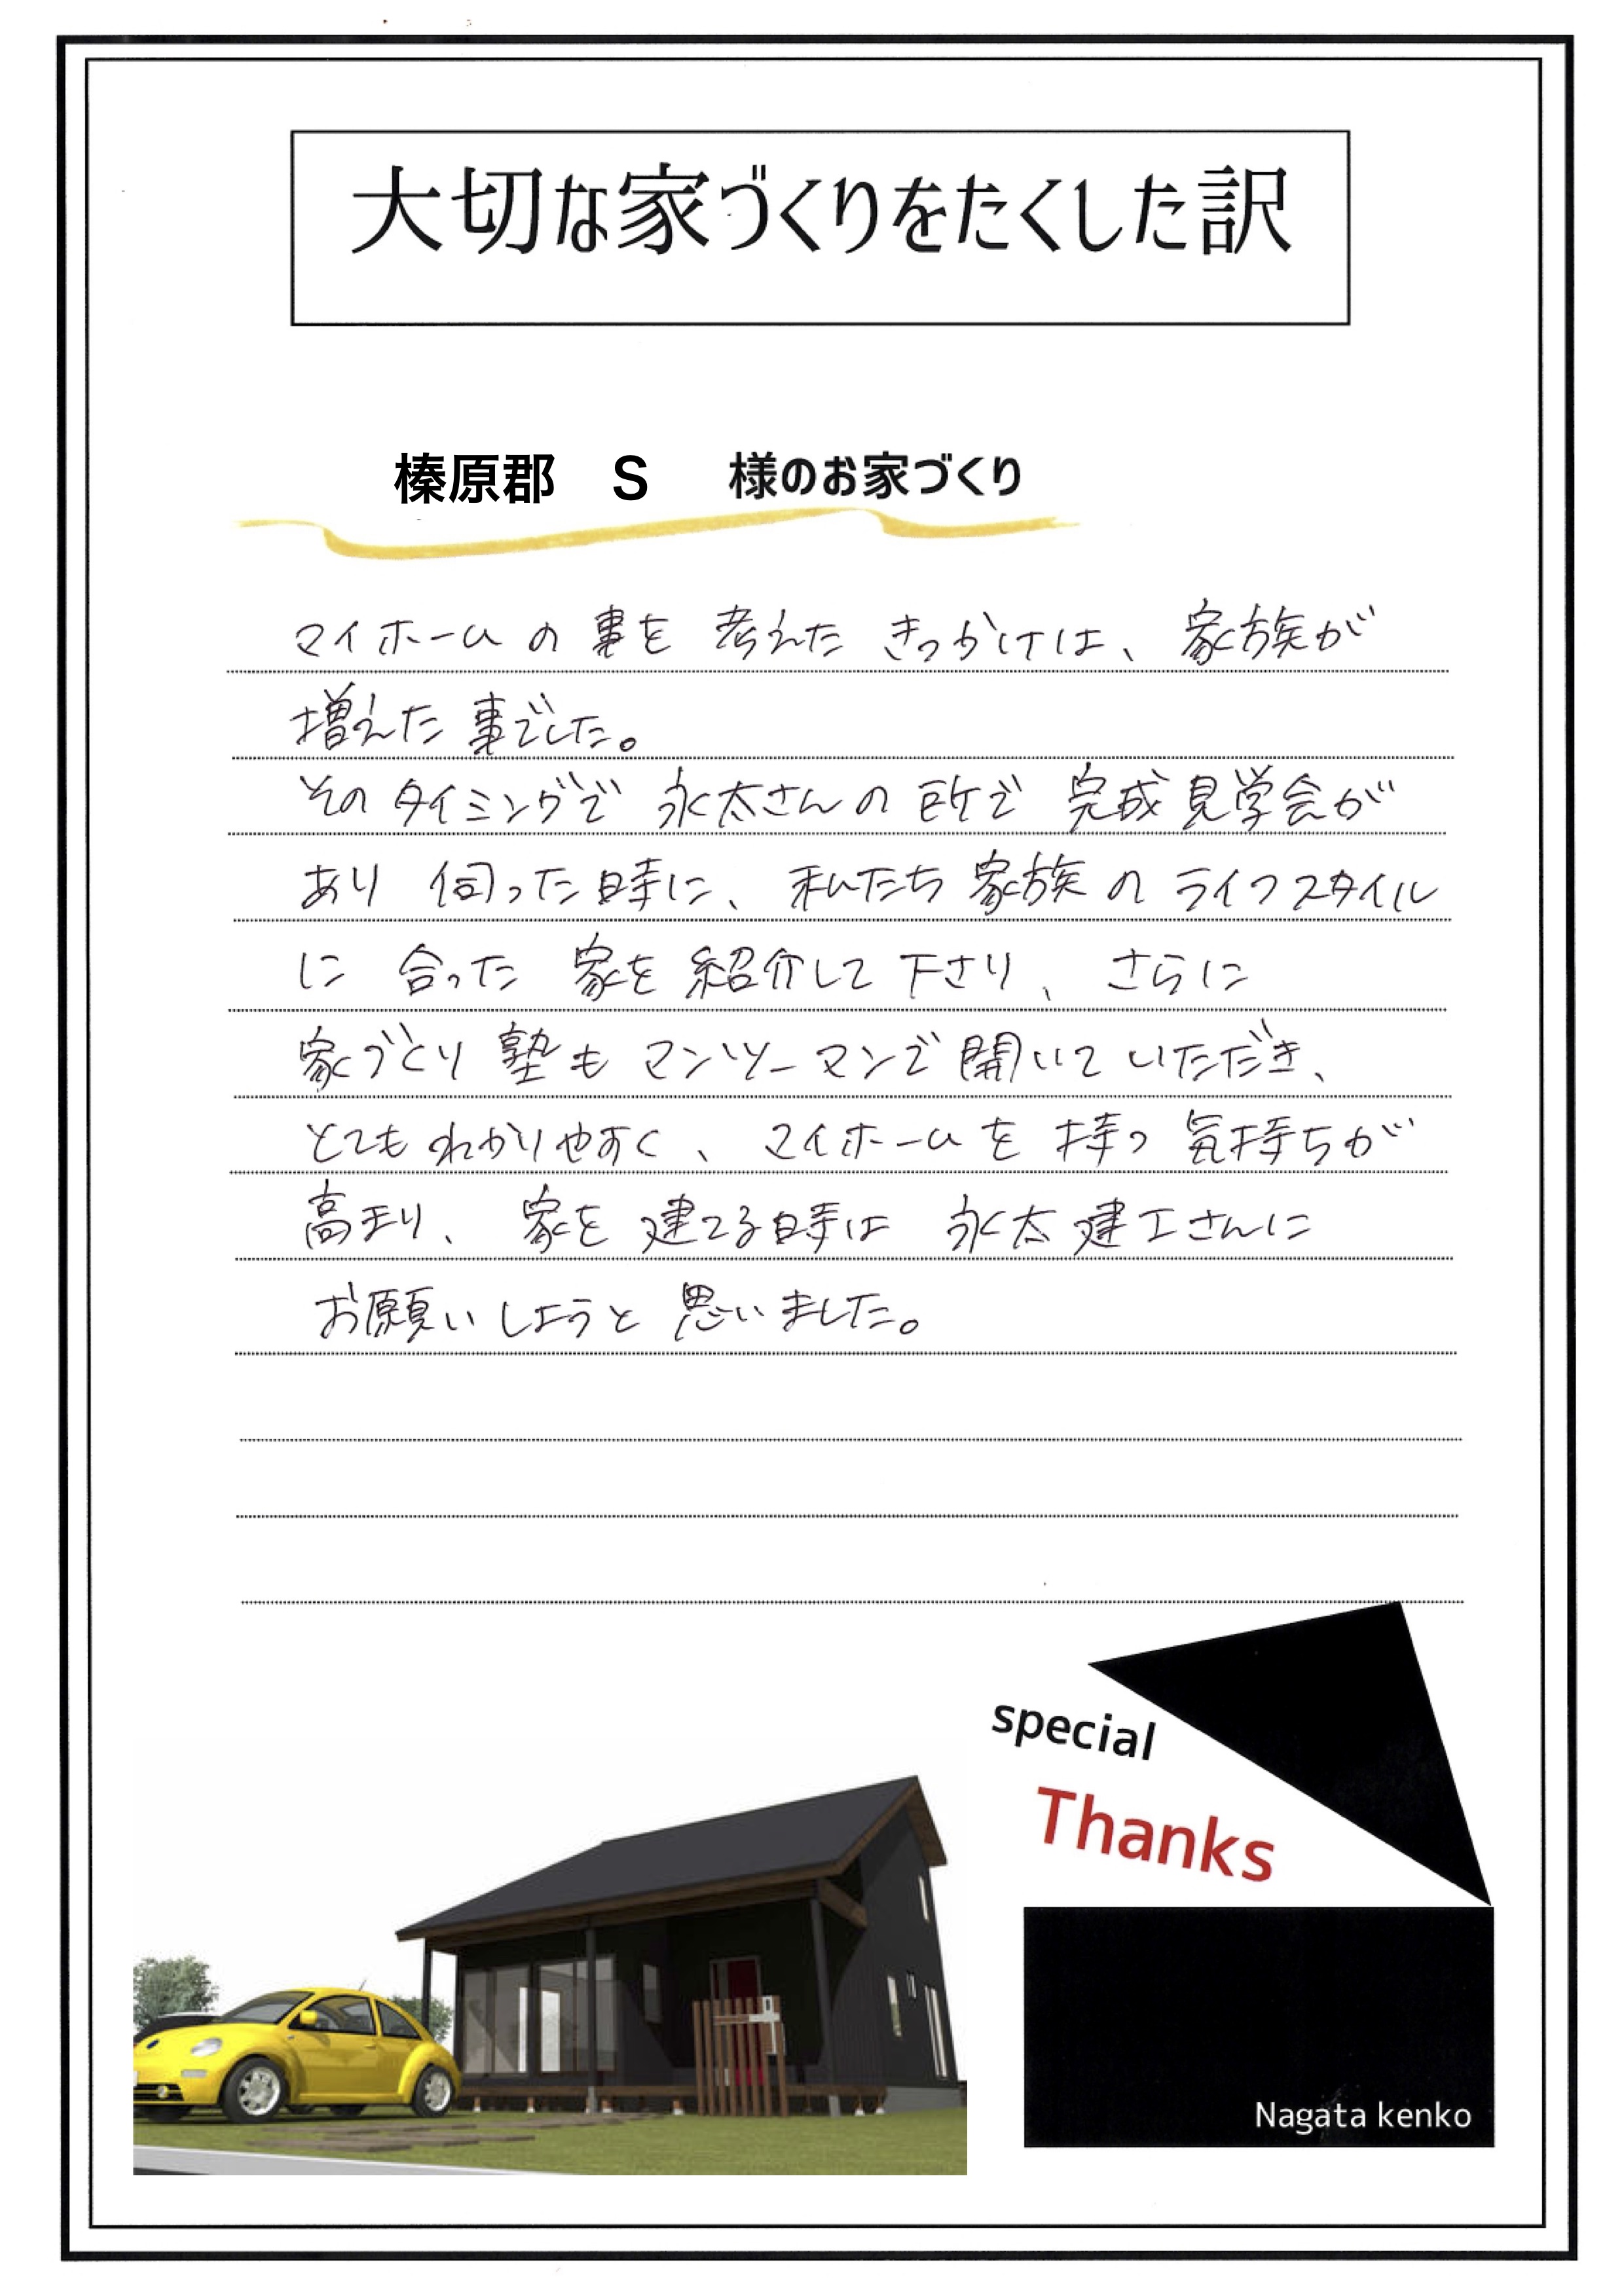 大切な家づくりをたくした訳
榛原郡 S 様のお家づくり
マイホームの事を考えたきっかけは、家族が
増えた事でした。
そのタイミングで永太さんの所で完成見学会が
あり伺った時に、私たち家族のライフスタイル
に合った家を紹介して下さり、さらに
家づくり塾もマンツーマンで開いていただき、
とてもわかりやすく、マイホームを持つ気持ちが
高まり、家を建てる時は永太建工さんに
お願いしようと思いました。
special
Thanks
Nagata kenko